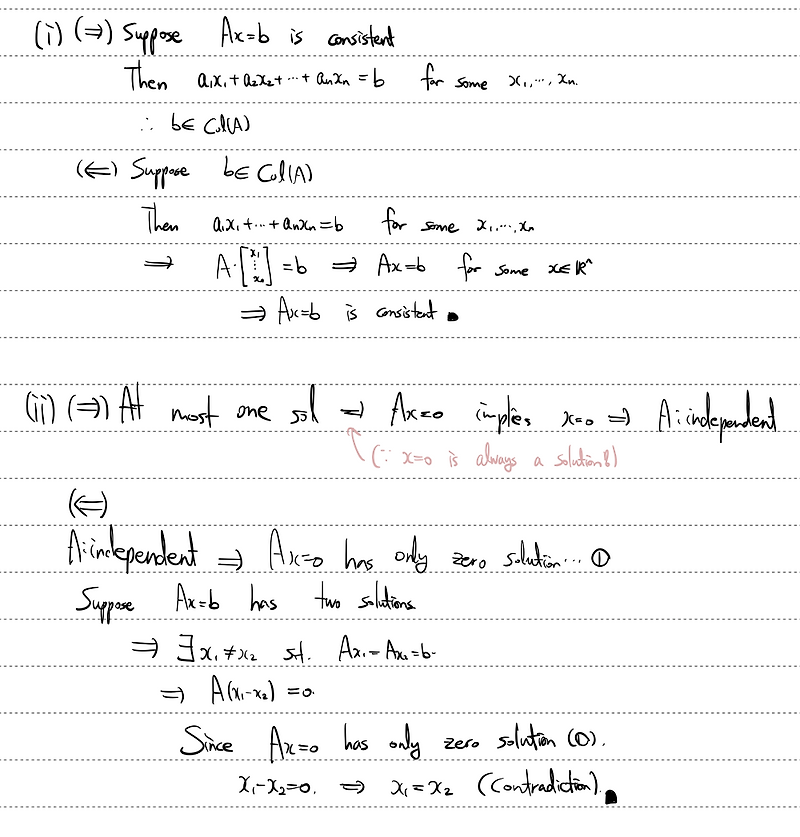 (i) (⇒) Suppose Ax=b is consistent
Then a₁x₁+a₂x₂+⋯+aₙxₙ=b for some x₁,⋯,xₙ.
∴ b∈Col(A)
(⇐) Suppose b∈Col(A)
Then a₁x₁+⋯+aₙxₙ=b for some x₁,⋯,xₙ
⇒ A·[x₁ ⋮ xₙ]=b ⇒ Ax=b for some x∈ℝⁿ
⇒ Ax=b is consistent ■
(ii) (⇒) At most one sol ⇒ Ax=0 implies x=0 ⇒ A:independent
(∵ x=0 is always a solution!)
(⇐)
A:independent ⇒ Ax=0 has only zero solution⋯ ①
Suppose Ax=b has two solutions
⇒ ∃x₁≠x₂ s.t. Ax₁=Ax₂=b.
⇒ A(x₁-x₂)=0.
Since Ax=0 has only zero solution (①).
x₁-x₂=0. ⇒ x₁=x₂ (Contradiction). ■